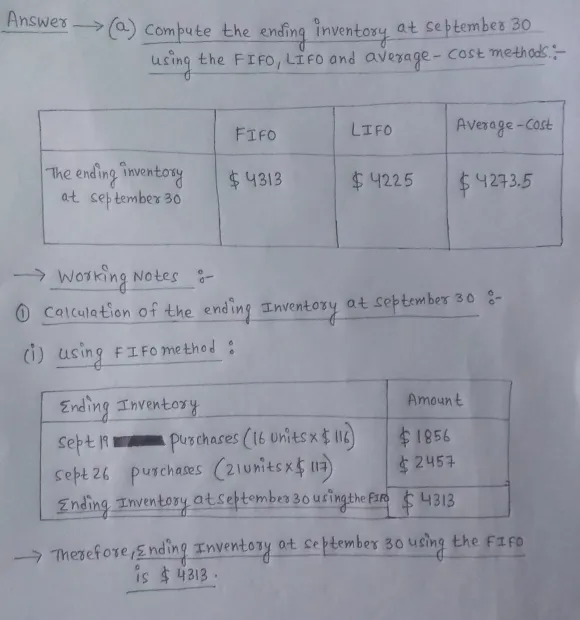 Answer → (a) Compute the ending inventory at september 30
using the FIFO, LIFO and average-cost methods:-
FIFO LIFO Average-Cost
The ending inventory $ 4313 $ 4225 $ 4273.5
at september 30
→ Working Notes :-
① Calculation of the ending Inventory at september 30 :-
(i) using FIFO method :
Ending Inventory Amount
Sept 19 purchases (16 Units x $ 116) $ 1856
Sept 26 purchases (21 units x $ 117) $ 2457
Ending Inventory at september 30 using the FIFO $ 4313
→ Therefore, Ending Inventory at september 30 using the FIFO
is $ 4313.